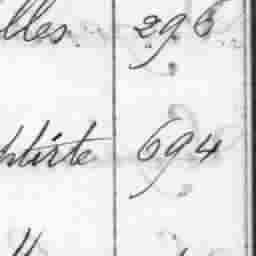 lles 296
ptiste 694